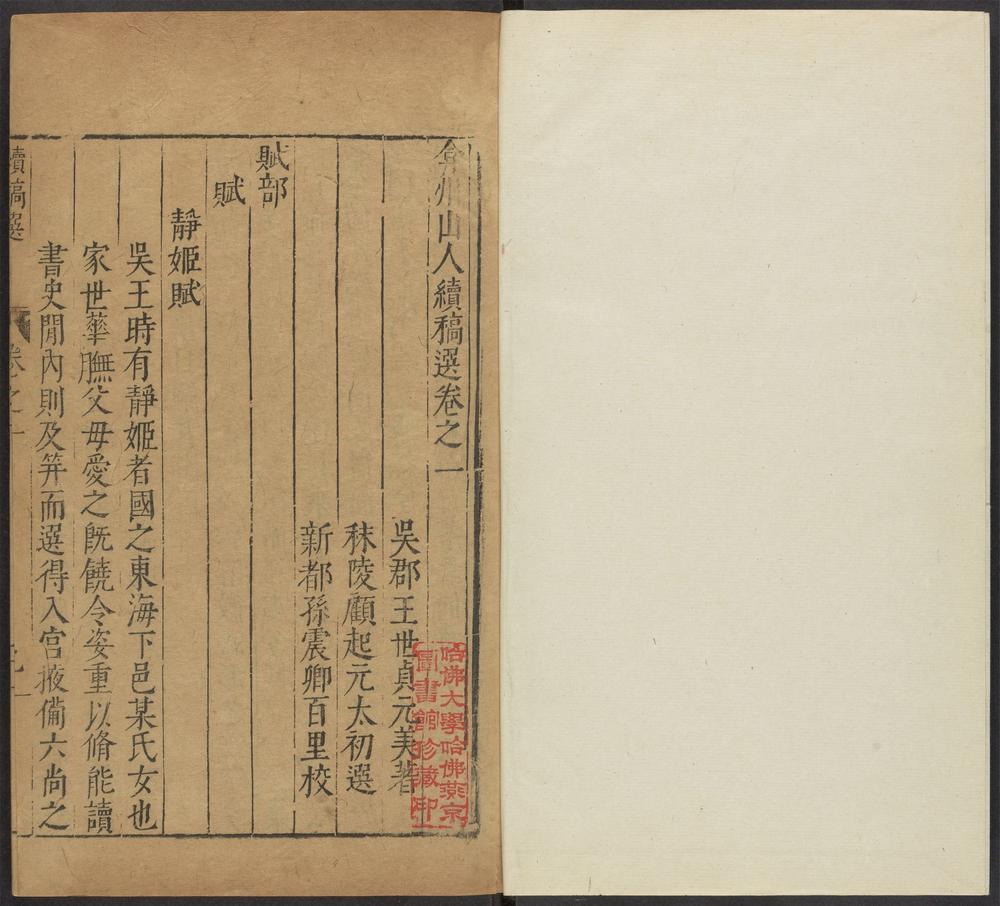 弇州山人續稿選卷之一
吳郡王世貞元美著
秣陵顧起元太初選
新都孫震卿百里校
賦部
賦
靜姬賦
吳王時有靜姬者國之東海下邑某氏女也
家世華膴父母愛之旣饒令姿重以脩能讀
書史閒內則及笄而選得入宮掖備六尚之
續稿選
卷之一
哈佛大學哈佛燕京
圖書館珍藏印